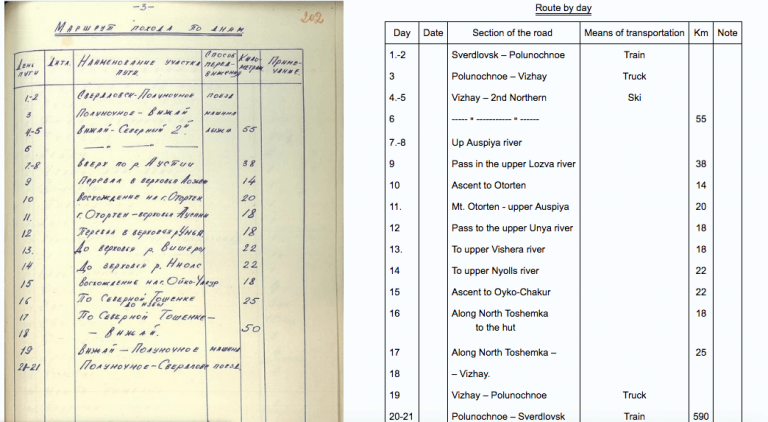 -3-
202
Маршрут похода по дням
День пути
Дата
Наименование участка пути.
Способ передвижения
Километраж
Примечание.
1.-2 Свердловск-Полуночное поезд
3 Полуночное - Вижай машина
4.-5 Вижай-Северный 2й. лыжи 55
6 — " — " —
7.-8 Вверх по р. Ауспии 38
9 Перевал в верховья Лозьвы 14
10 Восхождение на г. Отортен 20
11. г. Отортен-верховья Ауспии 18
12 Перевал в верховья р. Унья 18
13. До верховья р. Вишеры 22
14 До верховья р. Ниолс 22
15 Восхождение на г. Ойко-Чакур 18
16 По Северной Тошемке 25
до избы
17 По Северной Тошемке-
18 - Вижай. 50
19 Вижай - Полуночное машина
20-21 Полуночное-Свердловск поезд.
Route by day
Day Date Section of the road Means of transportation Km Note
1.-2 Sverdlovsk – Polunochnoe Train
3 Polunochnoe – Vizhay Truck
4.-5 Vizhay – 2nd Northern Ski
6 ----- " ----------- " ------ 55
7.-8 Up Auspiya river
9 Pass in the upper Lozva river 38
10 Ascent to Otorten 14
11. Mt. Otorten - upper Auspiya 20
12 Pass to the upper Unya river 18
13. To upper Vishera river 18
14 To upper Nyolls river 22
15 Ascent to Oyko-Chakur 22
16 Along North Toshemka 18
to the hut
17 Along North Toshemka – 25
18 – Vizhay.
19 Vizhay – Polunochnoe Truck
20-21 Polunochnoe – Sverdlovsk Train 590